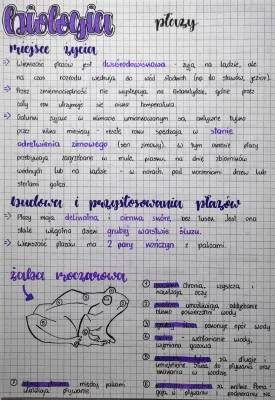 biologia
płazy
miejsce życia
Większość płazów jest dwuśrodowiskowa - żyją na lądzie, ale
na czas rozrodu wędrują do wód słodkich (np. do stawów, jezior).
Przez zmiennocieplność nie występują na Antarktydzie, gdzie przez
cały rok utrzymuje się niska temperatura.
Gatunki żyjące w klimacie umiarkowanym są aktywne tylko
przez kilka miesięcy - resztę roku spędzają w stanie
odrętwienia zimowego (sen zimowy). W tym okresie płazy
przebywają zagrzebane w mule, piasku na dnie zbiorników
wodnych lub na lądzie - w norach, pod korzeniami drzew lub
stertami gałęzi.
budowa i przystosowania płazów
Płazy mają delikatną i cienką skórę, bez łusek. Jest ona
stale wilgotna dzięki grubej warstwie śluzu.
Większość płazów ma 2 pary kończyn z palcami.
żaba moczarowa
chronią, czyszczą i
nawilżają oczy
umożliwiają oddychanie
blisko powierzchni wody
stawia opór wody
- wchłanianie wody,
wymiana gazowa
są długie i
umięśnione. Służą do pływania oraz
skakania w wodzie
między palcami
ułatwiają pływanie